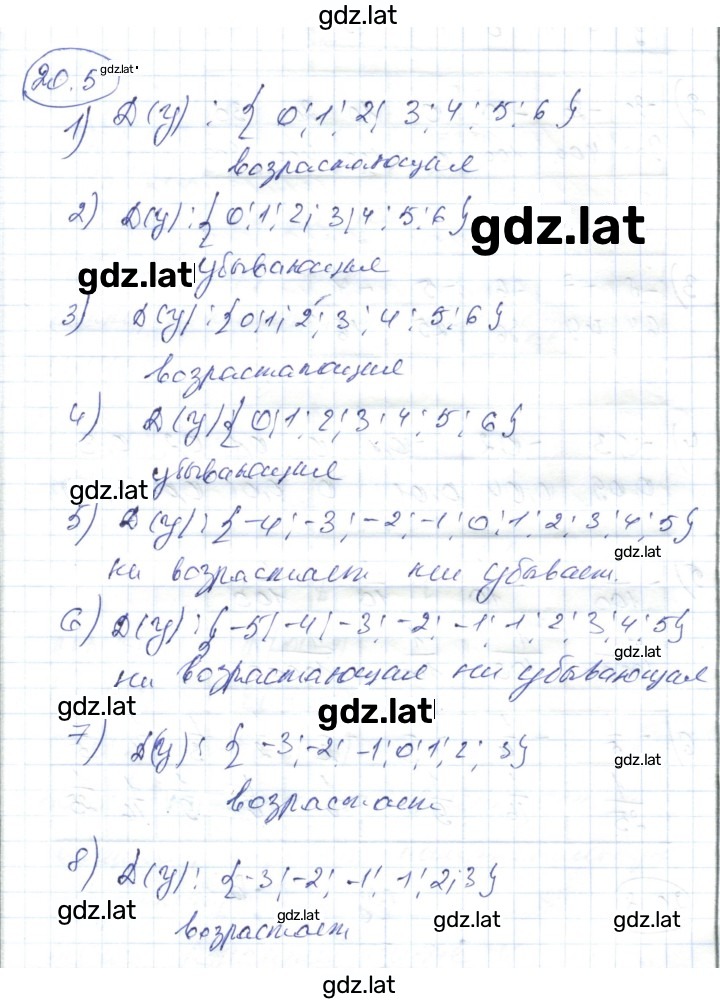 gdz.lat
20.5 gdz.lat
1) D(y): { 0; 1; 2; 3; 4; 5; 6 }
возрастающия
2) D(y): { 0; 1; 2; 3; 4; 5; 6 }
gdz.lat
gdz.lat убывающия
3) D(y): { 0; 1; 2; 3; 4; 5; 6 }
возрастающия
4) D(y) { 0; 1; 2; 3; 4; 5; 6 }
убывающия
gdz.lat
5) D(y): { -4; -3; -2; -1; 0; 1; 2; 3; 4; 5 }
gdz.lat
ни возрастает ни убывает.
6) D(y): { -5; -4; -3; -2; -1; 1; 2; 3; 4; 5 }
gdz.lat
ни возрастающая ни убывающия
gdz.lat gdz.lat
7) D(y): { -3; -2; -1; 0; 1; 2; 3 }
gdz.lat
возрастает
8) D(y): { -3; -2; -1; 1; 2; 3 }
gdz.lat gdz.lat gdz.lat gdz.lat
возрастает
gdz.lat